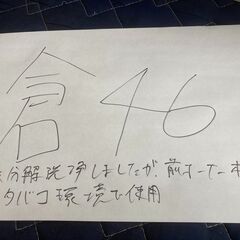 倉46
分解洗浄しましたが、前オーナー
タバコ環境で使用